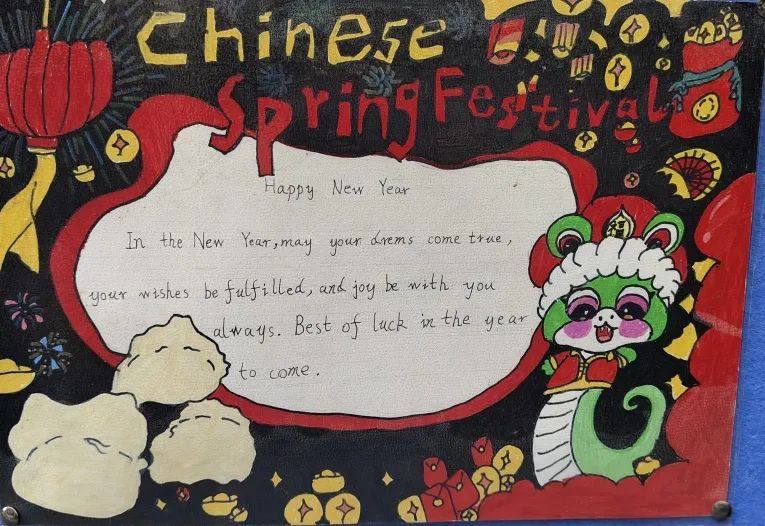 Chinese
Spring Festival
Happy New Year
In the New Year, may your drems come true,
your wishes be fulfilled, and joy be with you
always. Best of luck in the year
to come.